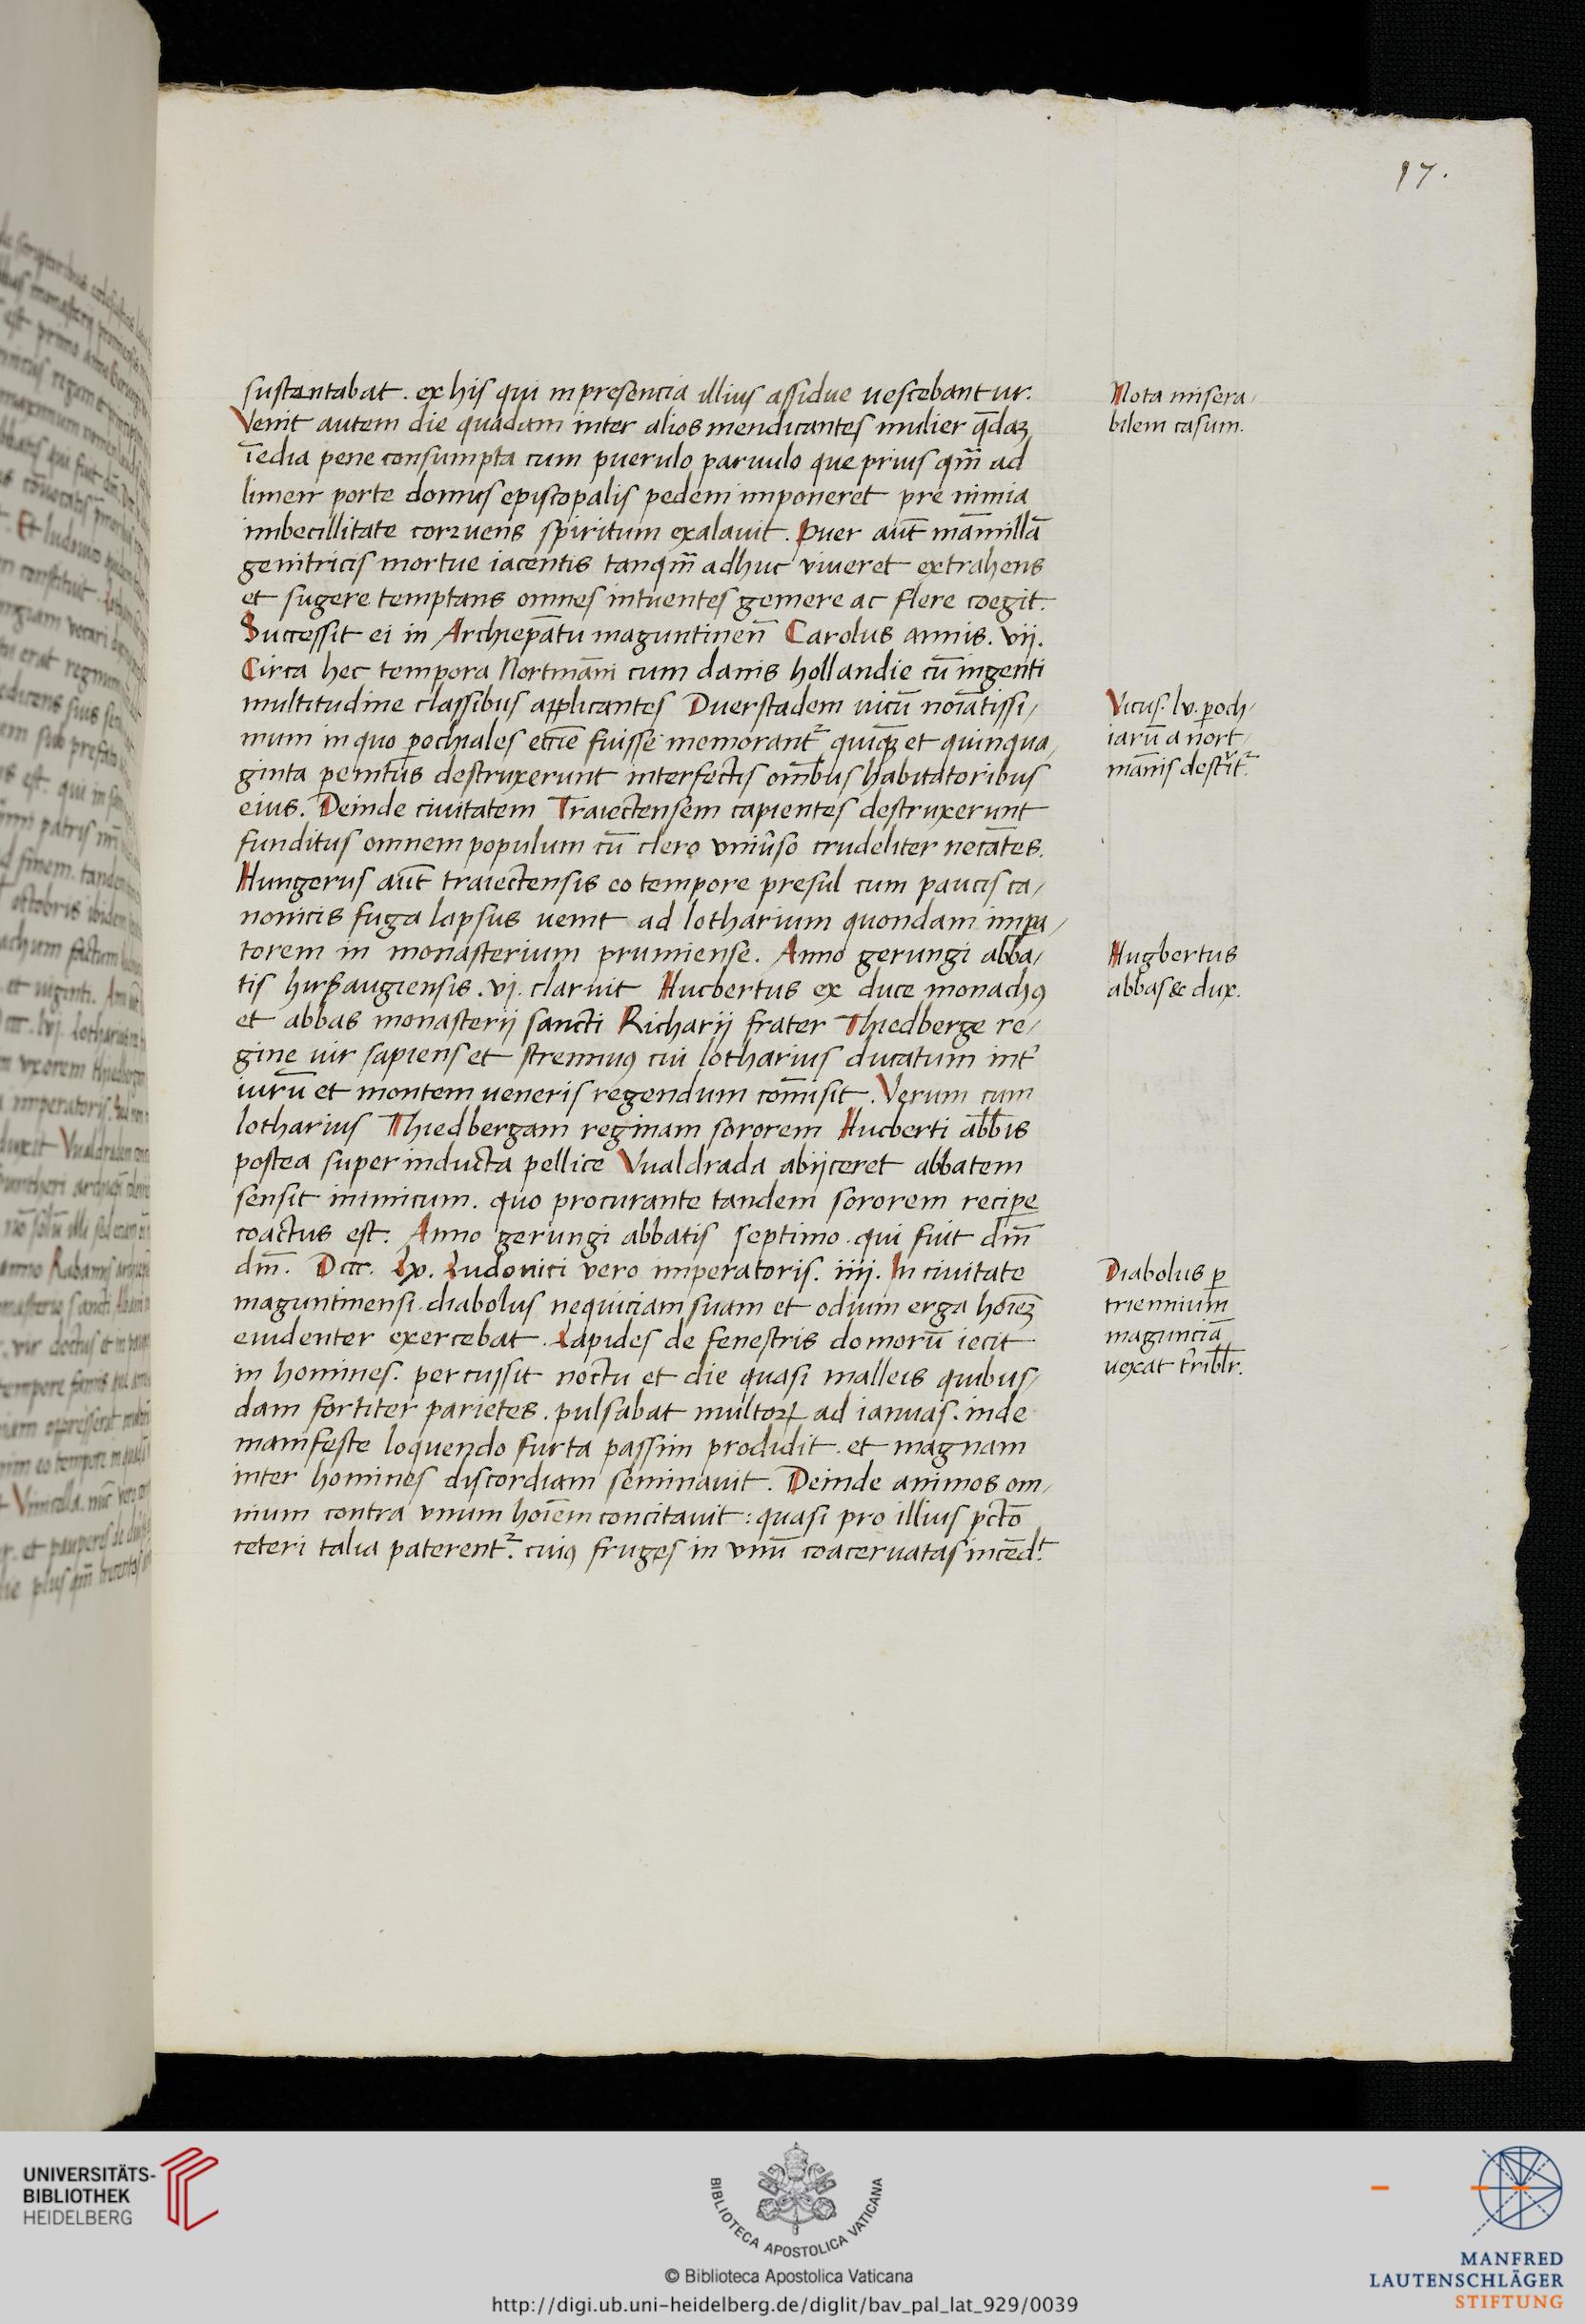 17.
sustentabat. ex his qui in presencia illius assidue uescebantur.
Venit autem die quadam inter alios mendicantes mulier q̄daꝫ
īedia pene consumpta cum puerulo paruulo que prius qm̄ ad
limen porte domus episcopalis pedem imponeret pre nimia
imbecillitate corruens spiritum exalauit. Puer aut̄ māmillā
genitricis mortue iacentis tanqm̄ adhuc viueret extrahens
et sugere temptans omnes intuentes gemere ac flere coegit.
Successit ei in Archiepātu maguntinen̄ Carolus annis. vij.
Circa hec tempora Nortmāni cum danis hollandie cū ingenti
multitudine classibus applicantes Duerstadem uicū noīatissi/
mum in quo ꝑochiales eccīe fuisse memorant᷑ quiqꝫ et quinqua/
ginta penitus destruxerunt interfectis om̄ibus habitatoribus
eius. Deinde ciuitatem Traiectensem capientes destruxerunt
funditus omnem populum cū clero vniu̓so crudeliter necātes.
Hungerus aut̄ traiectensis eo tempore presul cum paucis ca/
nonicis fuga lapsus uenit ad lotharium quondam impa/
torem in monasterium prumiense. Anno gerungi abba/
tis hirsaugiensis. vj. claruit Hucbertus ex duce monachꝰ
et abbas monasterij sancti Richarij frater Thiedberge re/
gine uir sapiens et strennuꝰ cui lotharius ducatum int̓
iurū et montem ueneris regendum com̄isit. Verum cum
lotharius Thiedbergam reginam sororem Hucberti abb̄is
postea superinducta pellice Vualdrada abijceret abbatem
sensit inimicum. quo procurante tandem sororem reciꝑe
coactus est. Anno gerungi abbatis septimo. qui fuit dm̄
dm̄. Dccc. Lx. Ludouici vero imperatoris. iiij. In ciuitate
maguntinensi diabolus nequiciam suam et odium erga hoīeꝫ
euidenter exercebat. Lapides de fenestris domorū iecit
in homines. percussit noctu et die quasi malleis quibus/
dam fortiter parietes. pulsabat multoꝝ ad ianuas. inde
manifeste loquendo furta passim prodidit. et magnam
inter homines discordiam seminauit. Deinde animos om/
nium contra vnum hoīem concitauit: quasi pro illius pctō
ceteri talia paterent᷑. cuiꝰ fruges in vnū coaceruatas incēdᵗ.
Nota misera/
bilem casum.
Vicus. lv. ꝑoch/
iarū a nort/
mānis destr̓it᷑.
Hugbertus
abbas & dux.
Diabolus ꝑ
triennium
magunciā
uexat tr̓ibłr.
UNIVERSITÄTS-
BIBLIOTHEK
HEIDELBERG
BIBLIOTECA APOSTOLICA VATICANA
© Biblioteca Apostolica Vaticana
http://digi.ub.uni-heidelberg.de/diglit/bav_pal_lat_929/0039
MANFRED
LAUTENSCHLÄGER
STIFTUNG